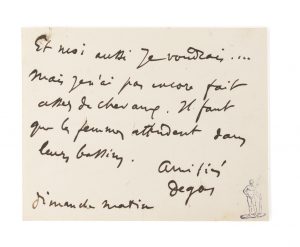 Et moi aussi je voudrais....
Mais je n'ai pas encore fait
assez de chevaux. Il faut
que les femmes attendent dans
leurs bassins.
Amitiés
Degas
dimanche matin